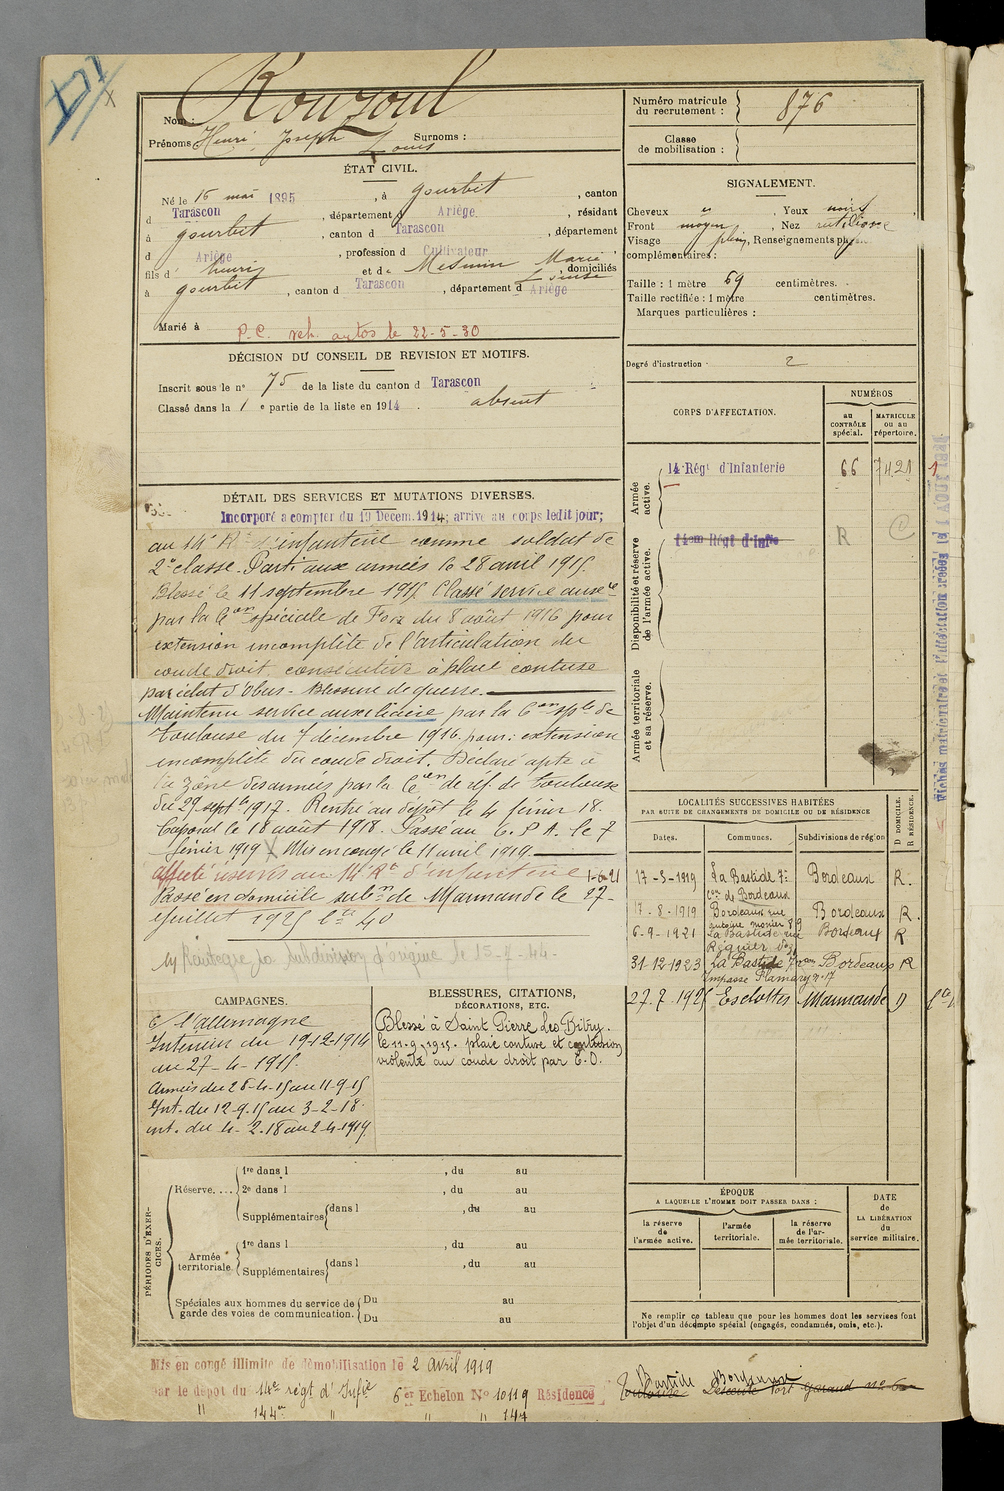 Rouzoul
Nom :
Prénoms Henri Joseph Louis Surnoms :
ÉTAT CIVIL.
Né le 15 mai 1895, à Gourbit, canton
d Tarascon, département d Ariège, résidant
à Gourbit, canton d Tarascon, département
d Ariège, profession d Cultivateur
fils d' Henri et de Mesmin Marie Louise, domiciliés
à Gourbit, canton d Tarascon, département d Ariège
Marié à
P.C. veh. autos le 22-5-30
DÉCISION DU CONSEIL DE REVISION ET MOTIFS.
Inscrit sous le n° 75 de la liste du canton d Tarascon
Classé dans la 1 e partie de la liste en 1914. absent
DÉTAIL DES SERVICES ET MUTATIONS DIVERSES.
Incorporé a compter du 19 Décem. 1914; arrivé au corps ledit jour;
au 14e Rt d'infanterie comme soldat de
2e classe. Parti aux armées le 28 avril 1915.
Blessé le 11 septembre 1915. Classé service auxre
par la Con spéciale de Foix du 8 août 1916 pour
extension incomplète de l'articulation du
coude droit consécutive à plaie contuse
par éclat d'obus - Blessure de guerre.
Maintenu service auxiliaire par la Con sple de
Toulouse du 7 décembre 1916 pour: extension
incomplète du coude droit. Déclaré apte à
la zône des armées par la Con de réf. de Toulouse
du 29 septbre 1917. Rentré au dépôt le 4 février 18.
Caporal le 18 août 1918. Passé au C.P.A. le 7
février 1919 X Mis en congé le 11 avril 1919.
Affecté réserves au 14e Rt d'infanterie 1-6-21
Passé en domicile subon de Marmande le 27-
Juillet 1925
Réintègre la subdivision d'origine le
CAMPAGNES.
C/ l'allemagne
Intérieur du 19-12-1914
au 27-4-1915.
Armées du 28-4-15 au 11-9-15
Int. du 12-9-15 au 3-2-18.
int. du 4-2-18 au 2-4-1919.
BLESSURES, CITATIONS,
DÉCORATIONS, ETC.
Blessé à Saint Pierre Les Bitry.
le 11-9-1915. plaie contuse et contusion
violente au coude droit par E.O.
PÉRIODES D'EXERCICES.
Réserve....
1re dans l , du au
2e dans l , du au
Supplémentaires dans l , du au
Armée territoriale.
1re dans l , du au
Supplémentaires dans l , du au
Spéciales aux hommes du service de garde des voies de communication.
Du au
Du au
Mis en congé illimité de démobilisation le 2 Avril 1919
par le dépôt du 14e régt d'Infie 6e Echelon No 10119 Résidence
" 144e " " " 147
Numéro matricule du recrutement : 876
Classe de mobilisation :
SIGNALEMENT.
Cheveux, Yeux noirs
Front moyen, Nez rectiligne
Visage plein, Renseignements
complémentaires :
Taille : 1 mètre 69 centimètres.
Taille rectifiée : 1 mètre centimètres.
Marques particulières :
Degré d'instruction 2
CORPS D'AFFECTATION.
NUMÉROS
au CONTRÔLE spécial.
MATRICULE ou au répertoire.
Armée active.
14 Régt d'Infanterie 66 7421
Disponibilité et réserve de l'armée active.
14em Régt d'Infie R C
Armée territoriale et sa réserve.
LOCALITÉS SUCCESSIVES HABITÉES
PAR SUITE DE CHANGEMENTS DE DOMICILE OU DE RÉSIDENCE
D DOMICILE. R RÉSIDENCE.
Dates. Communes. Subdivisions de région
17-3-1919 La Bastide con de Bordeaux Bordeaux R.
17-8-1919 Bordeaux rue Bordeaux R.
6-9-1921 La Bastide rue Bordeaux R
31-12-1923 La Bastide Impasse Flamary n° 17 Bordeaux R
27.7.1925 Esclottes Marmande D
ÉPOQUE
A LAQUELLE L'HOMME DOIT PASSER DANS :
la réserve de l'armée active.
l'armée territoriale.
la réserve de l'armée territoriale.
DATE de LA LIBÉRATION du service militaire.
Ne remplir ce tableau que pour les hommes dont les services font
l'objet d'un décompte spécial (engagés, condamnés, omis, etc.).
Bastide Bordeaux
Toulouse Descente Port Garaud n° 6